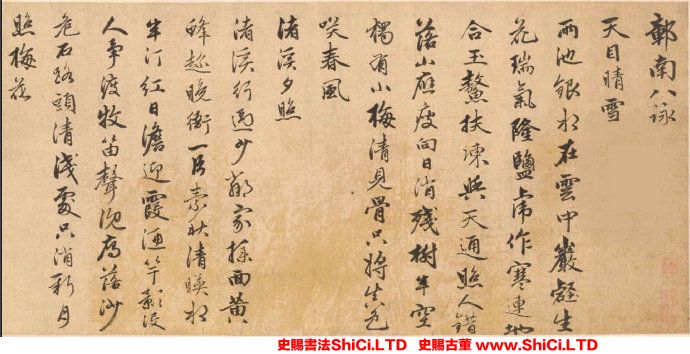 鄣南八詠
天目晴雪
兩池銀水在雲中巖壑生
花瑞氣隆鹽虎作寒連地
合玉鰲扶凍與天通照人錯
落山應瘦向日消殘樹半空
獨有小梅清見骨只將生色
咲春風
渚溪夕照
渚溪行過少鄰家撲面黃
蜂趂晚衙一片素秋清暎水
半汀紅日澹迎霞漁竿影沒
人爭渡牧笛聲沉鴈落沙
危石路頭清淺處只消新月
照梅花
史賜書法ShiCi.LTD 史賜古董 www.ShiCi.LTD